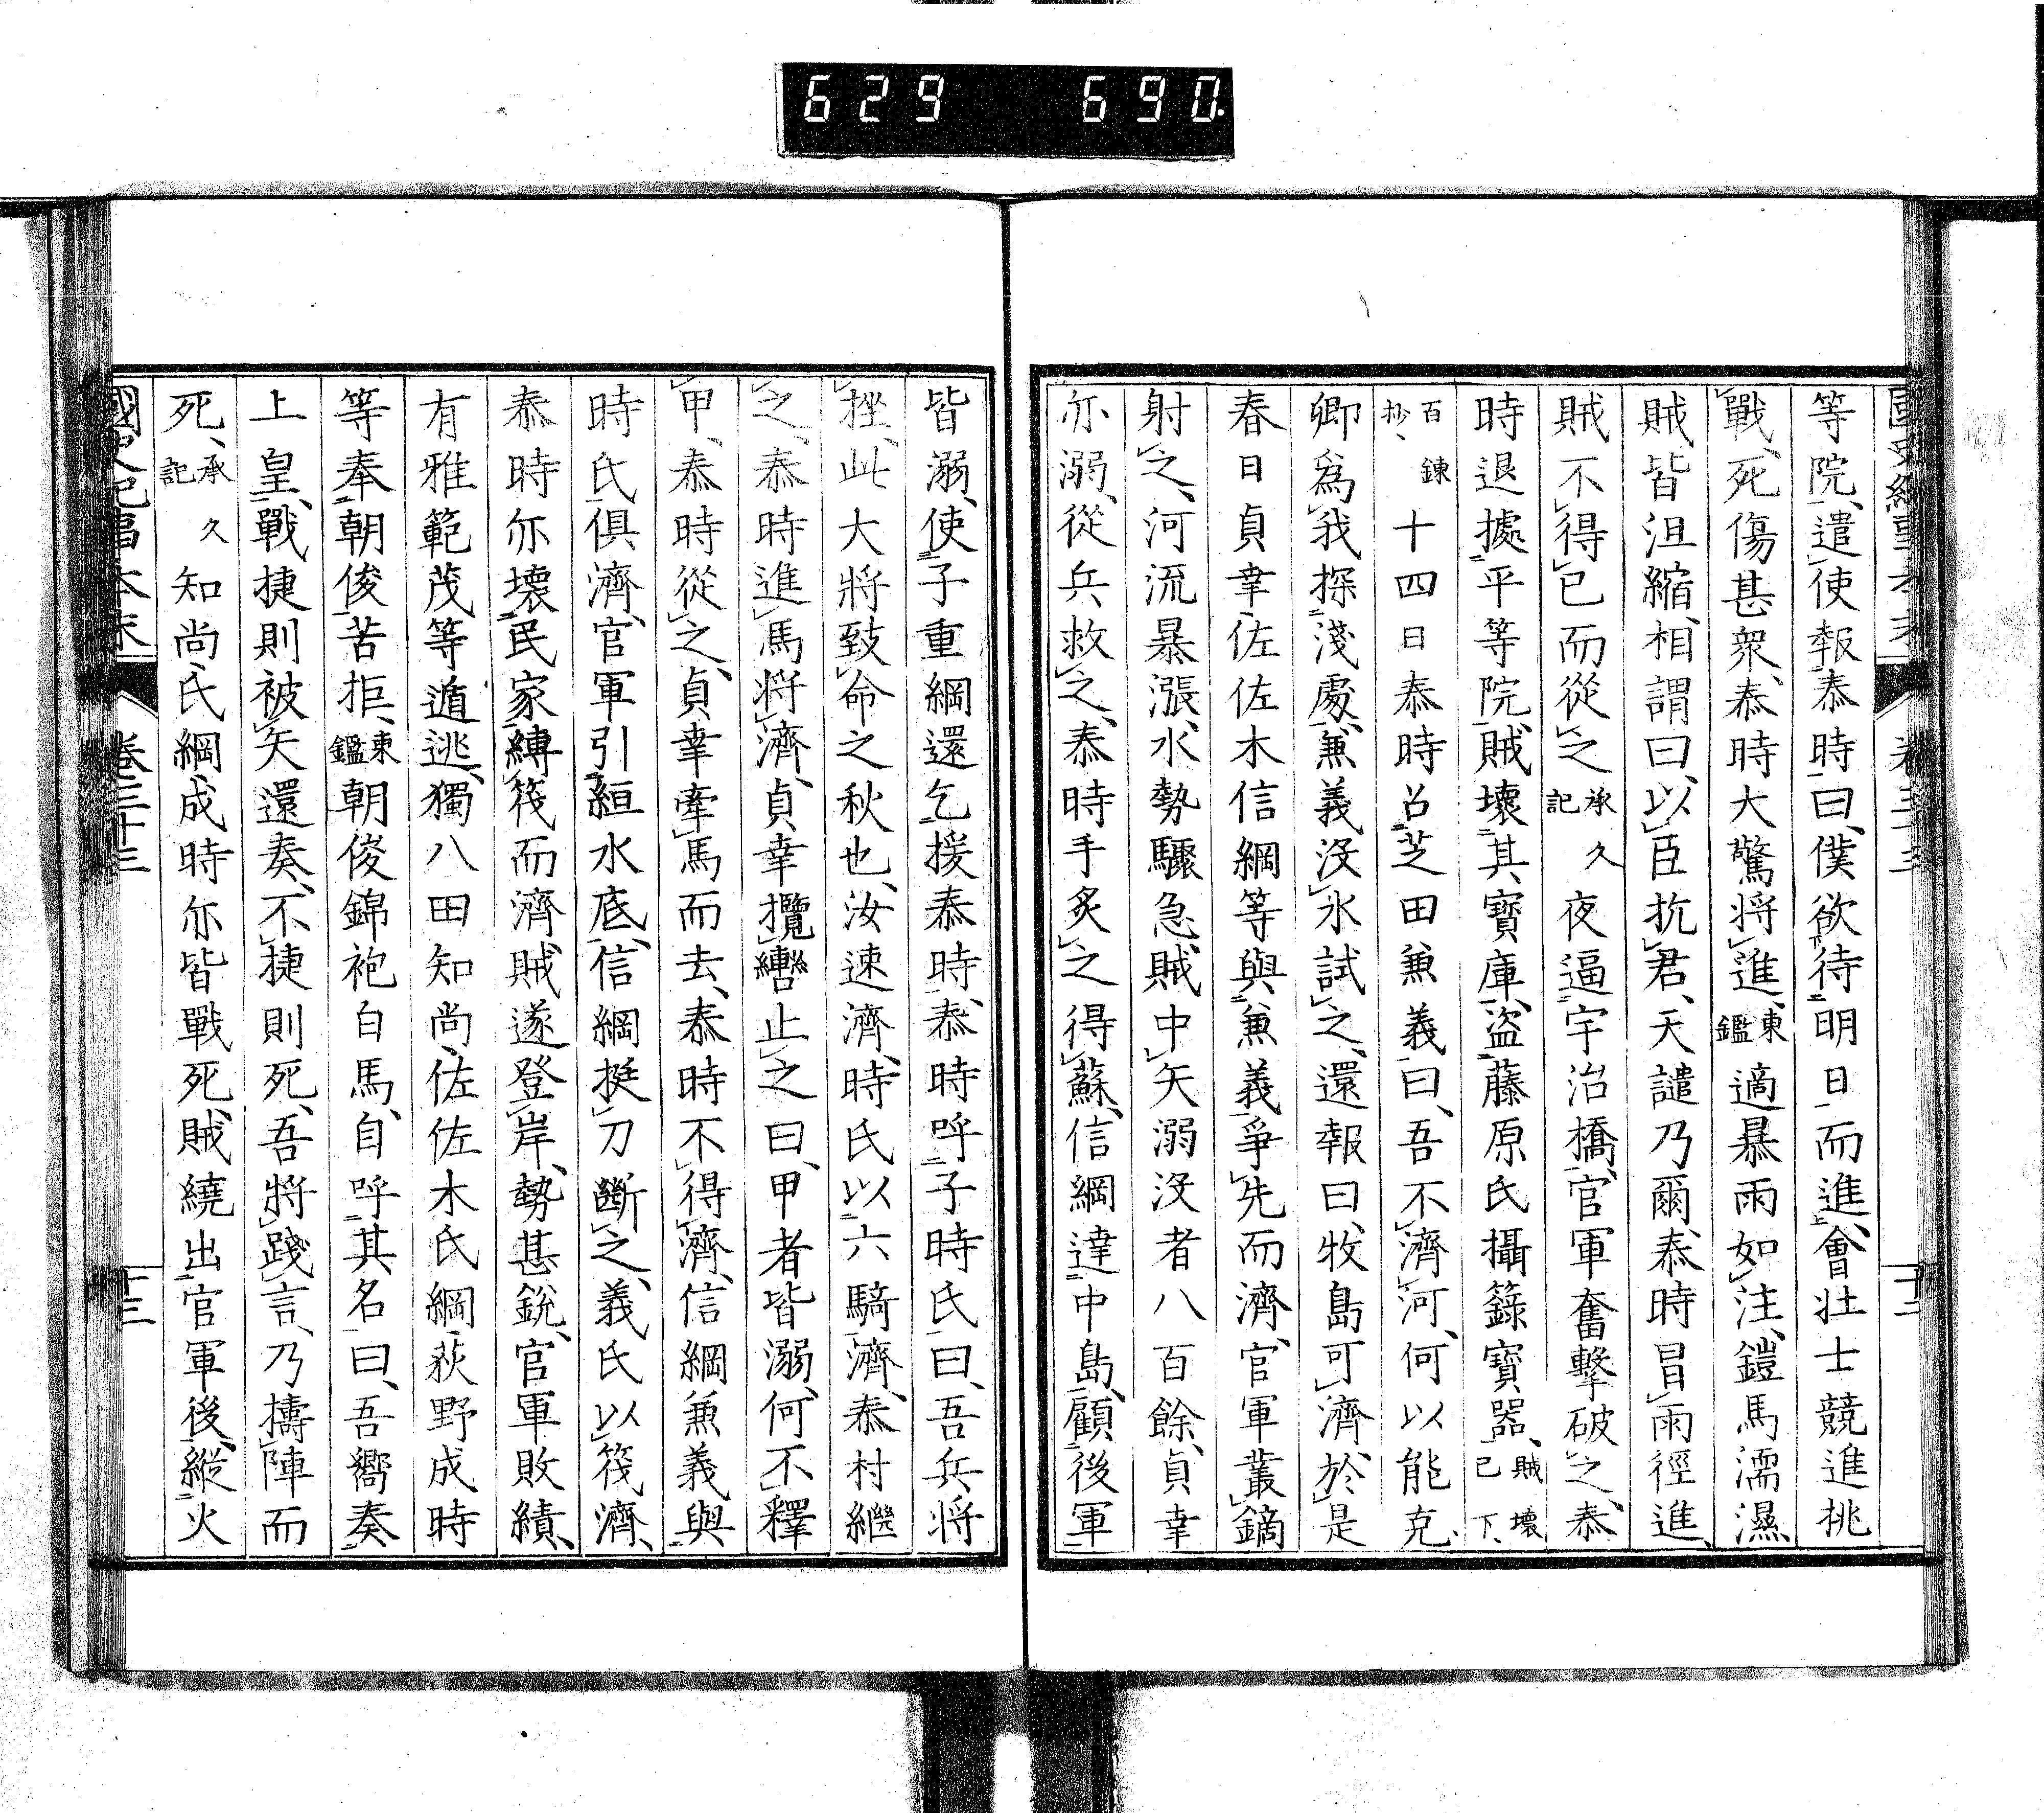 629 690.
等院、遣使報泰時曰、僕欲待明日而進、會壮士競進挑
戰、死傷甚衆、泰時大驚將進、東鑑適暴雨如注、鎧馬濡濕
賊皆沮縮、相謂曰、以臣抗君、天譴乃爾、泰時冒雨徑進、
賊不得已而從之承久記夜逼宇治橋、官軍奮擊破之、泰
時退據平等院、賊壞其寶庫、盗藤原氏攝籙寶器、賊壞已下、
百鍊抄、十四日泰時召芝田兼義曰、吾不濟河、何以能克、
卿爲我探淺處、兼義没水試之、還報曰、牧島可濟、於是
春日貞幸佐佐木信綱等與兼義爭先而濟、官軍叢鏑
射之、河流暴漲、水勢驟急、賊中矢溺没者八百餘、貞幸
亦溺、從兵救之、泰時手炙之得蘇、信綱達中島、顧後軍
皆溺、使子重綱還乞援泰時、泰時呼子時氏曰、吾兵將
挫、此大將致命之秋也、汝速濟、時氏以六騎濟、泰村繼
之、泰時進馬將濟、貞幸攬轡止之曰、甲者皆溺、何不釋
甲、泰時從之、貞幸牽馬而去、泰時不得濟、信綱兼義與
時氏俱濟、官軍引絙水底、信綱挺刀斷之、義氏以筏濟、
泰時亦壞民家縛筏而濟、賊遂登岸、勢甚銳、官軍敗績、
有雅範茂等遁逃、獨八田知尚佐佐木氏綱荻野成時
等奉朝俊苦拒、東鑑朝俊錦袍白馬、自呼其名曰、吾嚮奏
上皇、戰捷則被矢還奏、不捷則死、吾將踐言、乃擣陣而
死、承久記知尚氏綱成時亦皆戰死、賊繞出官軍後、縱火
國史紀事本末 卷三十三 十三